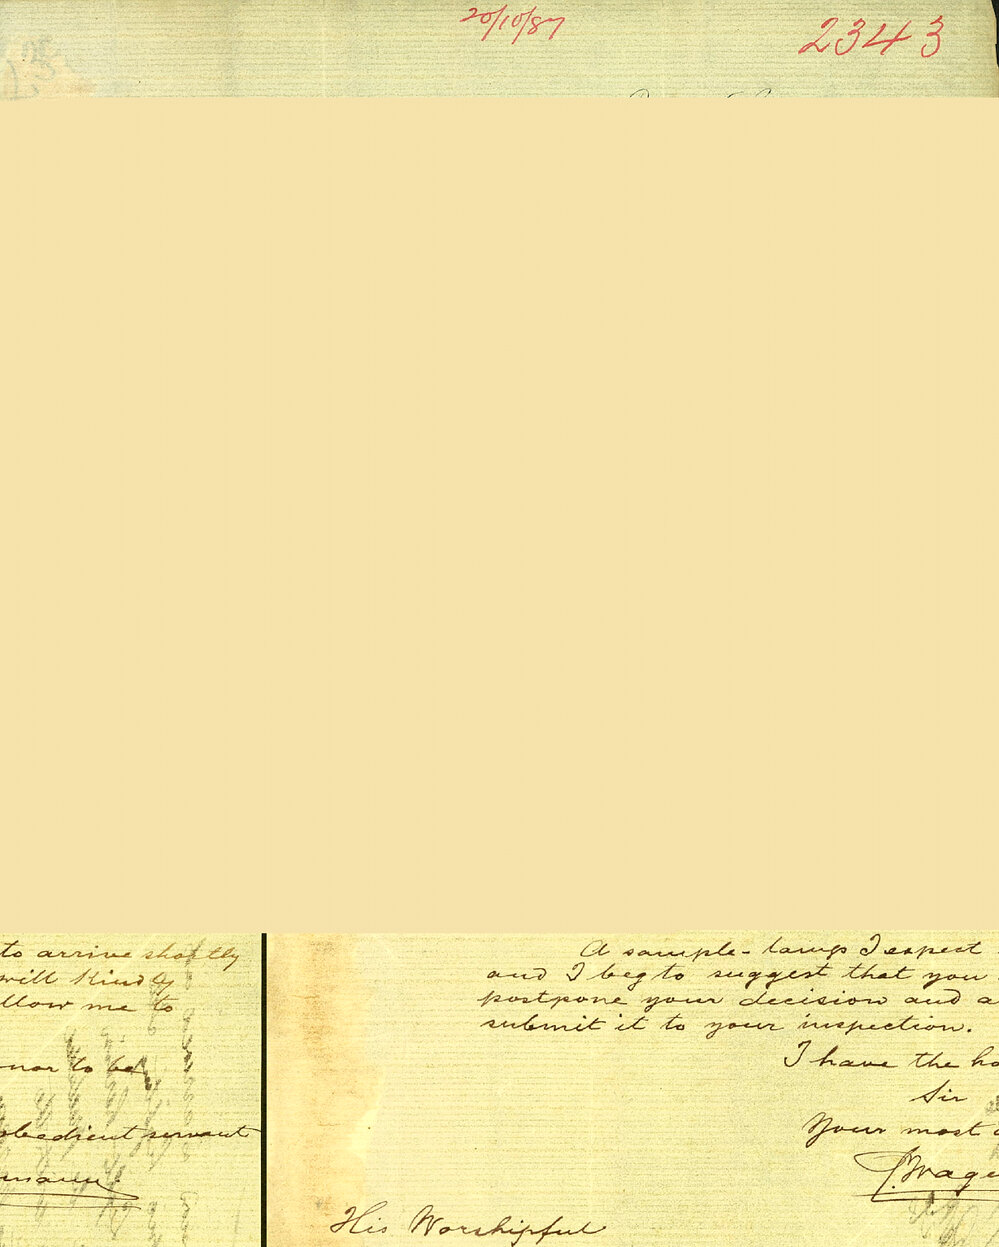 20/10/87
2343
to arrive shortly
will kindly
llow me to
nor to be
obedient servant
mann
A sample-lamp I expect
and I beg to suggest that you
postpone your decision and a
submit it to your inspection.
I have the ho
Sir
Your most o
Wage
His Worshipful